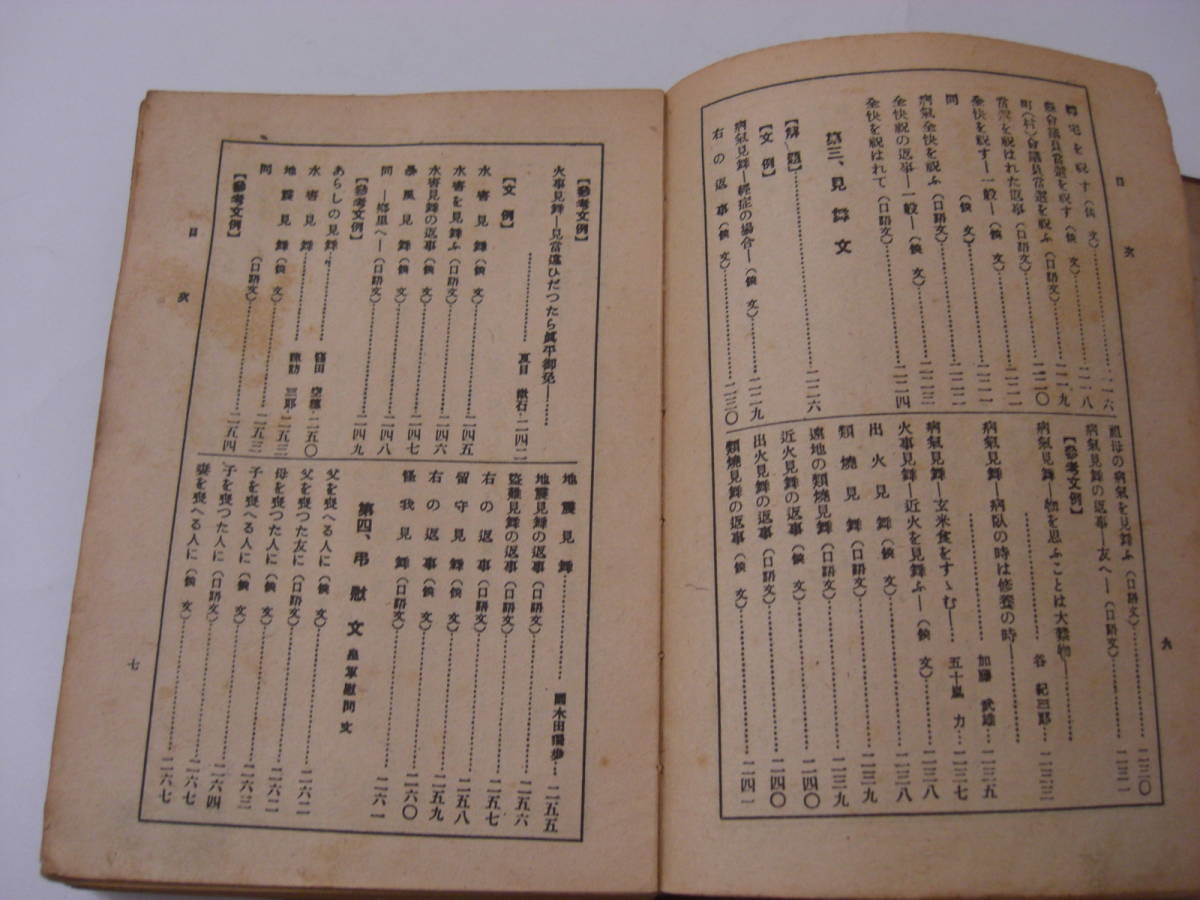 目次
六
宅を祝す(候文)……二一六
縣會議員當選を祝す(候文)……二一八
町(村)會議員當選を祝ふ(口語文)……二一九
當選を祝はれた返事(口語文)……二二〇
全快を祝す—一般—(候文)……二二一
同(候文)……二二一
病氣全快を祝ふ(口語文)……二二二
全快祝の返事—一般—(候文)……二二三
全快を祝はれて(口語文)……二二四
第三、見舞文
【解題】……二二六
【文例】
病氣見舞—輕症の場合—(候文)……二二九
右の返事(候文)……二三〇
祖母の病氣を見舞ふ(口語文)……二三〇
病氣見舞の返事—友へ—(口語文)……二三一
【參考文例】
病氣見舞—物を思ふことは大禁物—
……谷紀三郎…二三三
病氣見舞—病臥の時は修養の時—
……加藤武雄…二三五
病氣見舞—玄米食をすゝむ—五十嵐力…二三七
火事見舞—近火を見舞ふ—(候文)……二三八
出火見舞(候文)……二三八
類燒見舞(口語文)……二三九
遠地の類燒見舞(口語文)……二三九
近火見舞の返事(候文)……二四〇
出火見舞の返事(口語文)……二四〇
類燒見舞の返事(候文)……二四一
【參考文例】
火事見舞—見當違ひだつたら眞平御免—
……夏目漱石…二四二
【文例】
水害見舞(候文)……二四五
水害を見舞ふ(口語文)……二四六
水害見舞の返事(候文)……二四七
暴風見舞(候文)……二四七
同—鄕里へ—(口語文)……二四八
【參考文例】……二四九
あらしの見舞……窪田空穗…二五〇
水害見舞……諏訪三郎…二五二
地震見舞(候文)……二五三
同(口語文)……二五三
【參考文例】……二五四
地震見舞……國木田獨步…二五五
地震見舞の返事(口語文)……二五六
盜難見舞の返事(口語文)……二五七
右の返事(口語文)……二五七
留守見舞(候文)……二五八
右の返事(候文)……二五九
怪我見舞(口語文)……二六〇
第四、弔慰文 皇軍慰問文……二六一
父を喪へる人に(候文)……二六二
父を喪つた友に(口語文)……二六二
母を喪つた人に(口語文)……二六三
子を喪へる人に(候文)……二六三
子を喪つた人に(口語文)……二六四
妻を喪へる人に(候文)……二六七
目次
七